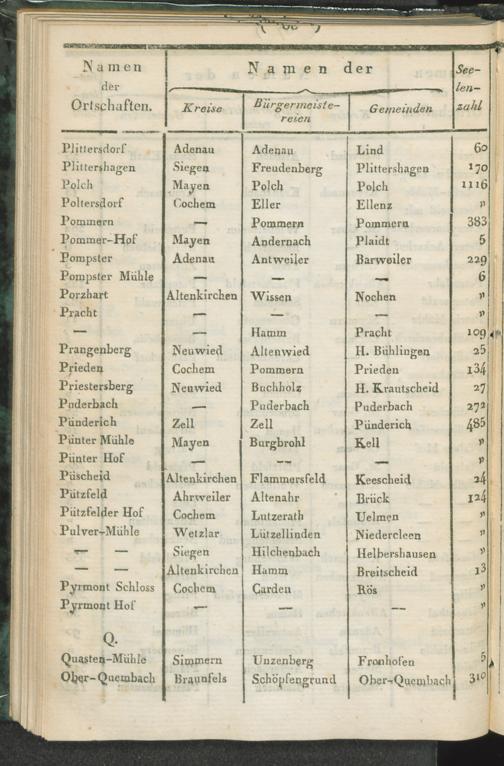 Namen der Ortschaften. | Namen der | Seelenzahl
Kreise | Bürgermeistereien | Gemeinden
Plittersdorf | Adenau | Adenau | Lind | 60
Plittershagen | Siegen | Freudenberg | Plittershagen | 170
Polch | Mayen | Polch | Polch | 1116
Poltersdorf | Cochem | Eller | Ellenz | „
Pommern | — | Pommern | Pommern | 383
Pommer-Hof | Mayen | Andernach | Plaidt | 5
Pompster | Adenau | Antweiler | Barweiler | 229
Pompster Mühle | — | — | — | 6
Porzhart | Altenkirchen | Wissen | Nochen | „
Pracht | — | | | „
— | — | Hamm | Pracht | 109
Prangenberg | Neuwied | Altenwied | H. Bühlingen | 25
Prieden | Cochem | Pommern | Prieden | 134
Priestersberg | Neuwied | Buchholz | H. Krautscheid | 27
Puderbach | — | Puderbach | Puderbach | 272
Pünderich | Zell | Zell | Pünderich | 485
Pünter Mühle | Mayen | Burgbrohl | Kell | „
Pünter Hof | — | — | — | „
Püscheid | Altenkirchen | Flammersfeld | Keescheid | 24
Pützfeld | Ahrweiler | Altenahr | Brück | 124
Pützfelder Hof | Cochem | Lutzerath | Uelmen | „
Pulver-Mühle | Wetzlar | Lützellinden | Niedercleen | „
— — | Siegen | Hilchenbach | Helbershausen | „
— — | Altenkirchen | Hamm | Breitscheid | 13
Pyrmont Schloss | Cochem | Carden | Rös | „
Pyrmont Hof | — | — | — | „
Q.
Quasten-Mühle | Simmern | Unzenberg | Fronhofen | 5
Ober-Quembach | Braunfels | Schöpfengrund | Ober-Quembach | 310